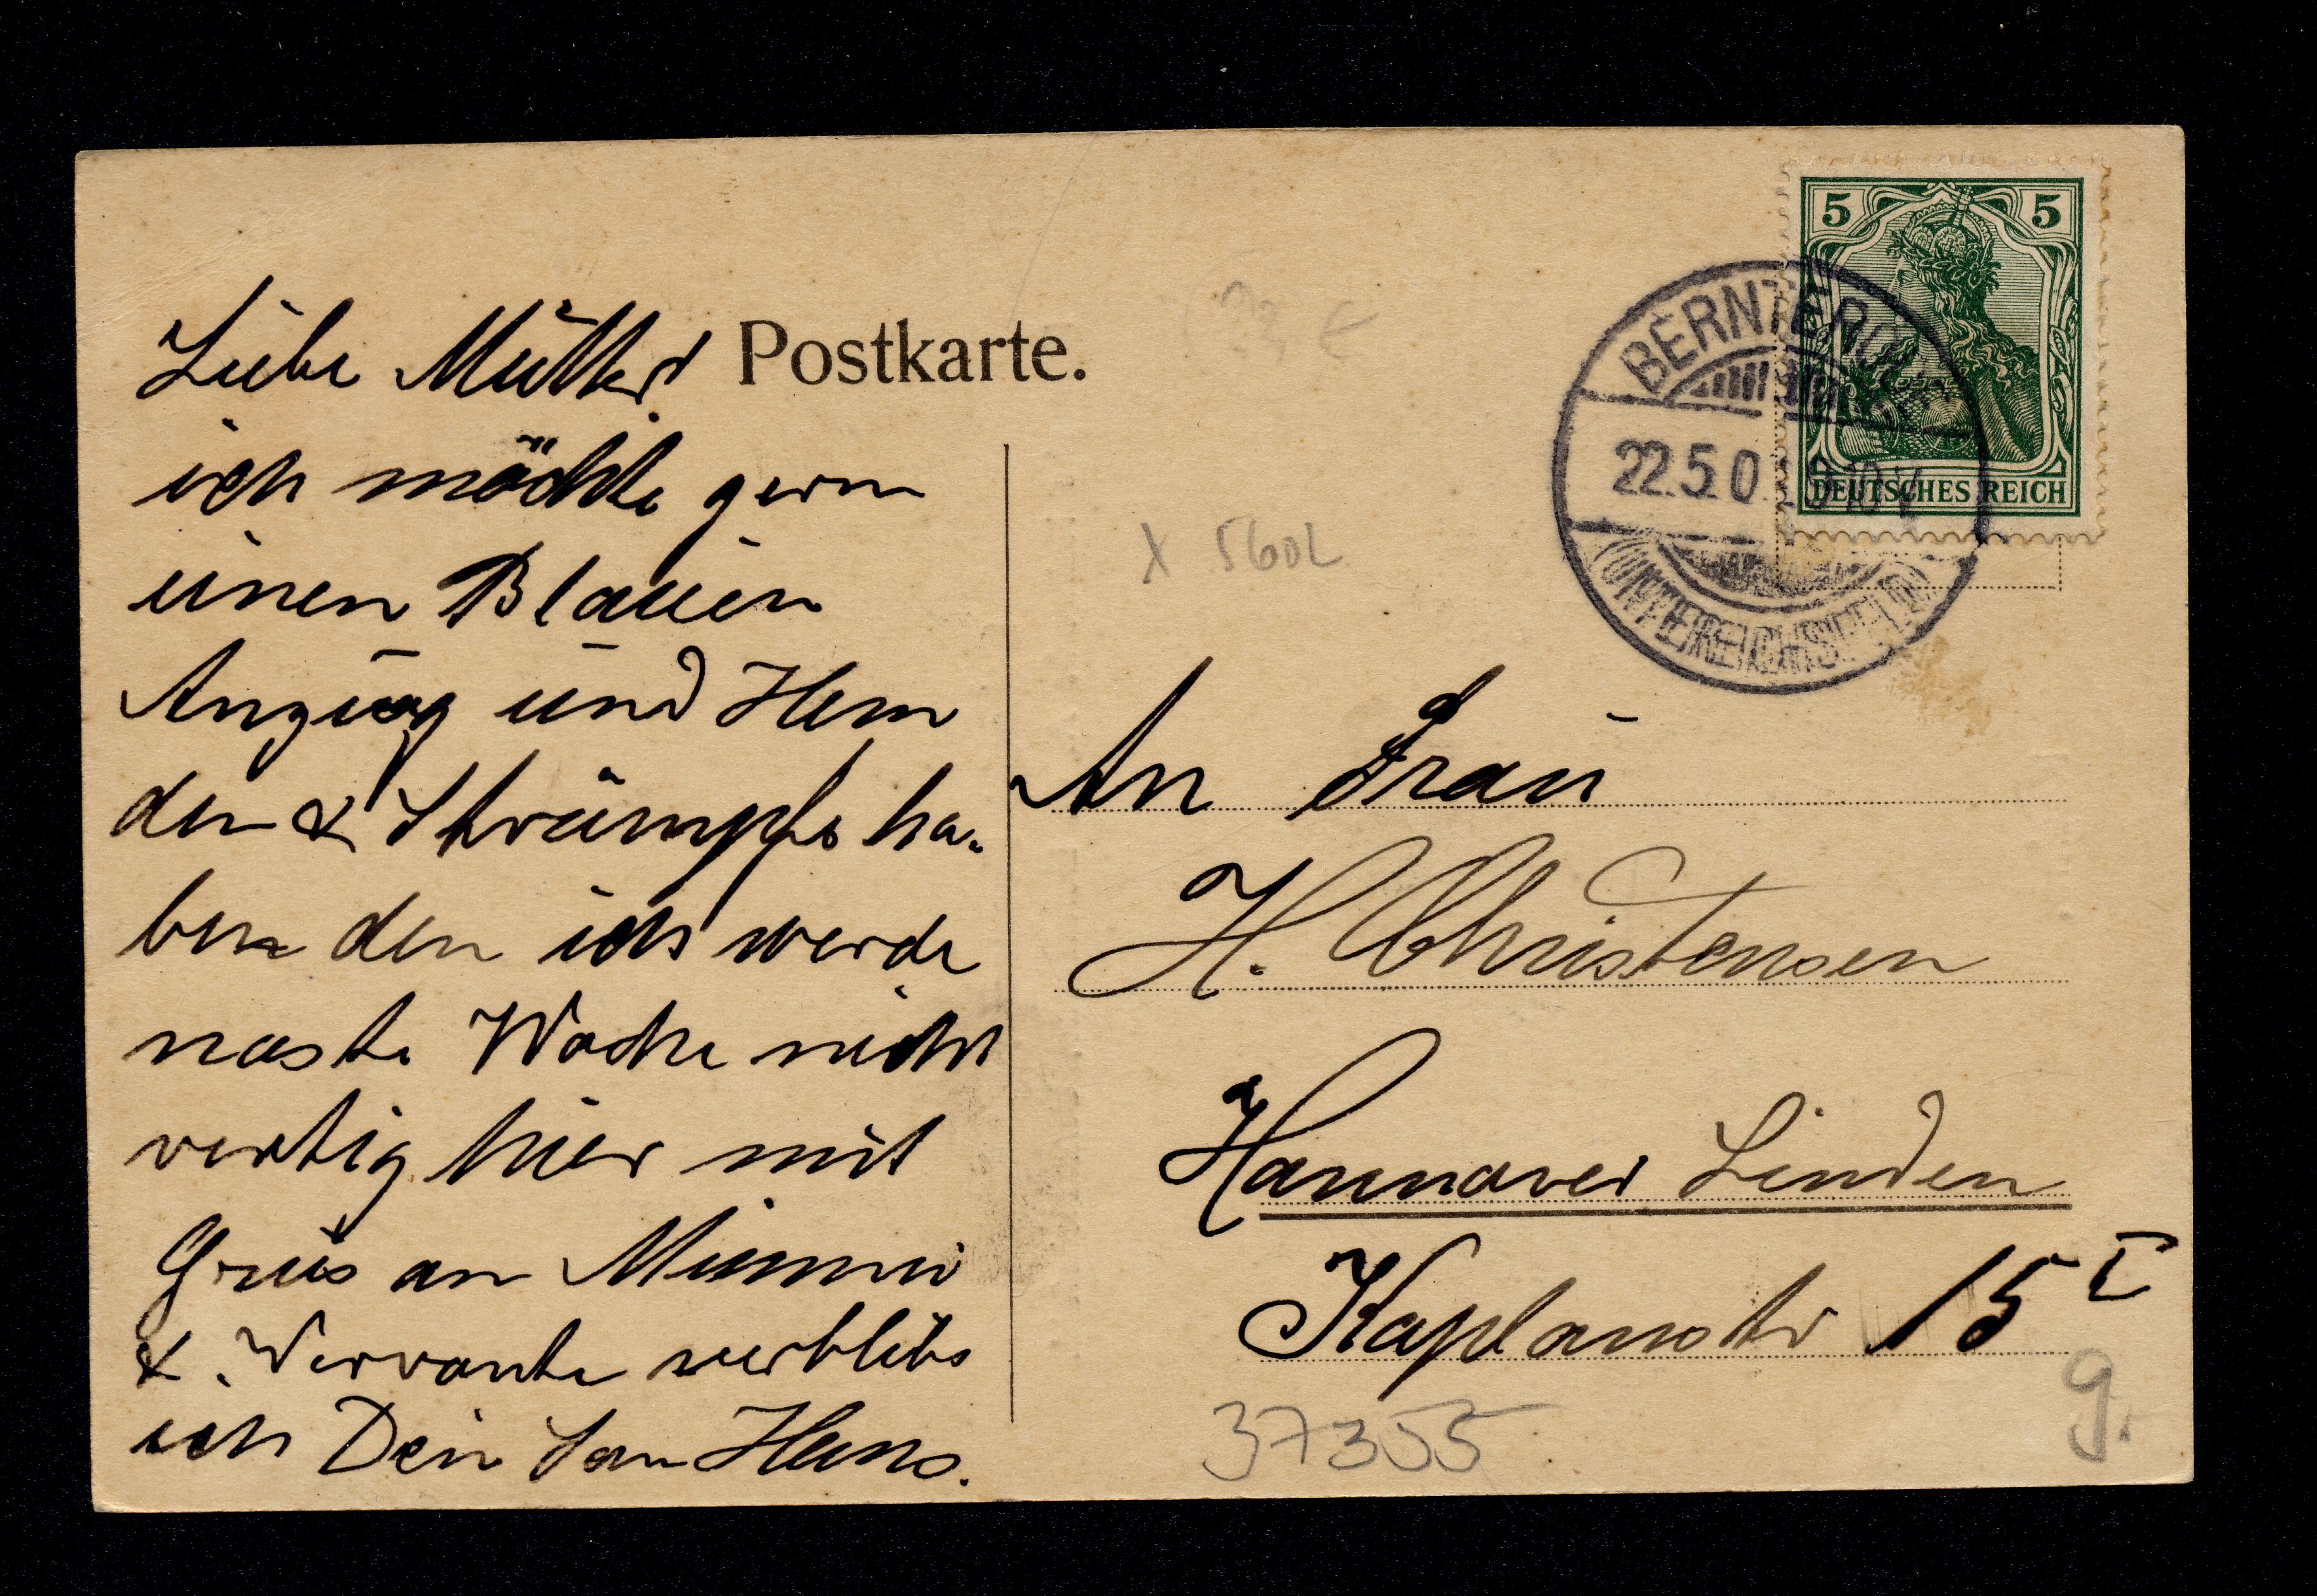 Postkarte.
Liebe Mutter!
ich möchte gern
einen Blauen
Anzug und Hem
den & Strümpfe ha-
ben den ich werde
naste Woche nicht
vertig hier mit
Grus an Mimmi
& Vervante verbleibe
ich Dein Son Hans.
5 5
DEUTSCHES REICH
BERNTERODE
22.5.0 9-10 V
(UNTEREICHSFELD)
X 560L
An Frau
H. Christensen
Hannover Linden
Kaplanstr 15 I
37355
g.